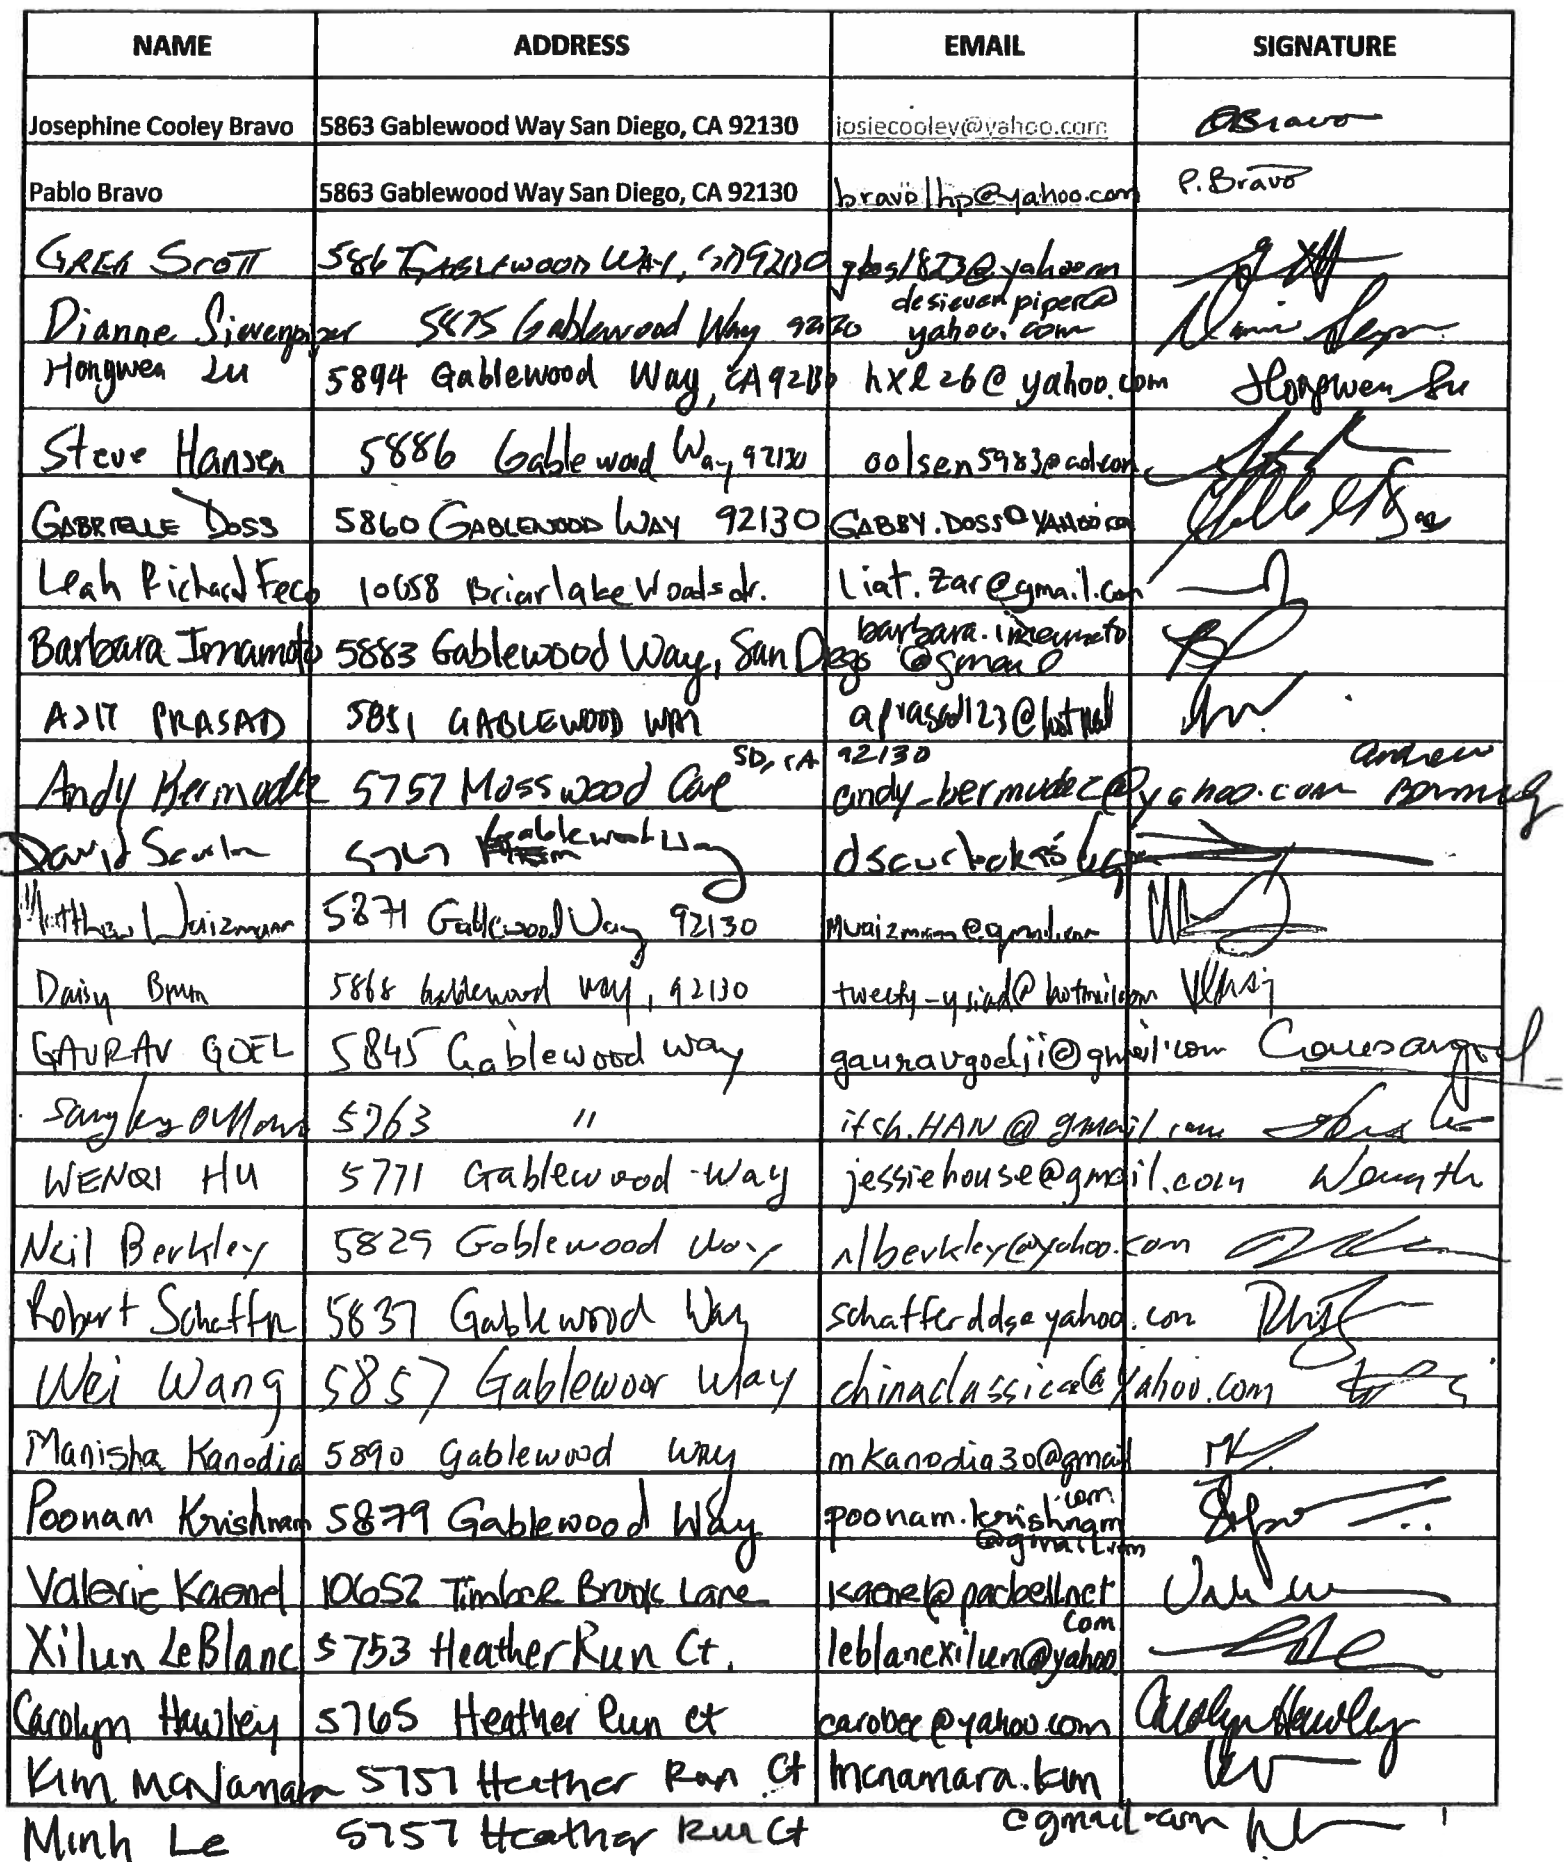 NAME ADDRESS EMAIL SIGNATURE
Josephine Cooley Bravo 5863 Gablewood Way San Diego, CA 92130 josiecooley@yahoo.com Bravo
Pablo Bravo 5863 Gablewood Way San Diego, CA 92130 bravolhp@yahoo.com P. Bravo
GREG SCOTT 5867 GABLEWOOD WAY, SD 92130
desievenpiper@
Dianne Sievenpiper 5875 Gablewood Way 92130 yahoo.com
Hongwen Lu 5894 Gablewood Way, CA 92130 hxl26@yahoo.com Hongwen Lu
Steve Hansen 5886 Gablewood Way 92130 oolsen5983@aol.com
GABRIELLE DOSS 5860 GABLEWOOD WAY 92130 GABBY.DOSS@YAHOO.CO
Leah Richard Feco 10658 Briarlake Woods dr. liat.zar@gmail.com
barbara.imamoto
Barbara Imamoto 5883 Gablewood Way, San Diego @gmail
AJIT PRASAD 5851 GABLEWOOD WAY aprasad123@hotmail
SD, CA 92130 Andrew
Andy Bermudez 5757 Mosswood Cove andy_bermudez@yahoo.com Bermudez
David 5767 Gablewood Way
Matthew Waizmann 5871 Gablewood Way 92130 mwaizmann@gmail.com
Daisy 5868 Gablewood Way, 92130 tweety_ysiad@hotmail.com
GAURAV GOEL 5845 Gablewood way gauravgoelji@gmail.com
5763 " itsh.HAN@gmail.com
WENQI HU 5771 Gablewood Way jessiehouse@gmail.com
Neil Berkley 5829 Gablewood Way nlberkley@yahoo.com
Robert Schaffer 5837 Gablewood Way schafferdds@yahoo.com
Wei Wang 5857 Gablewoor Way chinaclassica@yahoo.com
Manisha Kanodia 5890 Gablewood Way mkanodia30@gmail MK
.com
Poonam Krishnam 5879 Gablewood Way poonam.krishnam
@gmail.com
Valerie Kaenel 10652 Timber Brook Lane kaenel@pacbell.net
com
Xilun LeBlanc 5753 Heather Run Ct. leblancxilun@yahoo
Carolyn Hawley 5765 Heather Run Ct carobee@yahoo.com Carolyn Hawley
Kim McNamara 5757 Heather Run Ct mcnamara.kim
@gmail.com
Minh Le 5757 Heather Run Ct